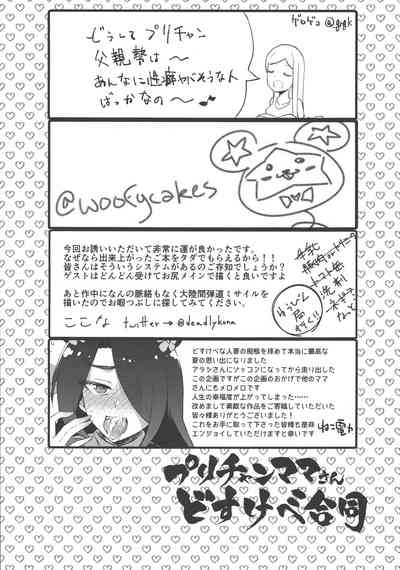 どうして プリチャン
父親勢は〜
あんなに性癖やべぇそうな人
ばっかなの〜♪
ゲロゲコ@grgk
@woofycakes
今回お誘いいただいて非常に運が良かったです。
なぜなら出来上がったご本をタダでもらえるから！！
皆さんはそういうシステムがあるのご存知でしょうか？
ゲストはどんどん受けてお尻メインで描くと良いですよ
あと作中になんの脈絡もなく大陸間弾道ミサイルを
描いたのでお暇つぶしに探してみてください
ここな twitter→@deadlykona
洗剤
どすけべな人妻の痴態を拝めて本当に最高な
夏の思い出になりました
アラシさんにゾッコンになってから走り出した
この企画ですがこの企画のおかげで他のママ
さんにもメロメロです
人生の幸福度が上がってしまった……
改めまして素敵な作品をご寄稿していただいた
皆々様ありがとうございました！
これをお手に取って下さった皆様も是非
エンジョイしていただけますと幸いです
ねこ電力
プリチャンママさん
どすけべ合同